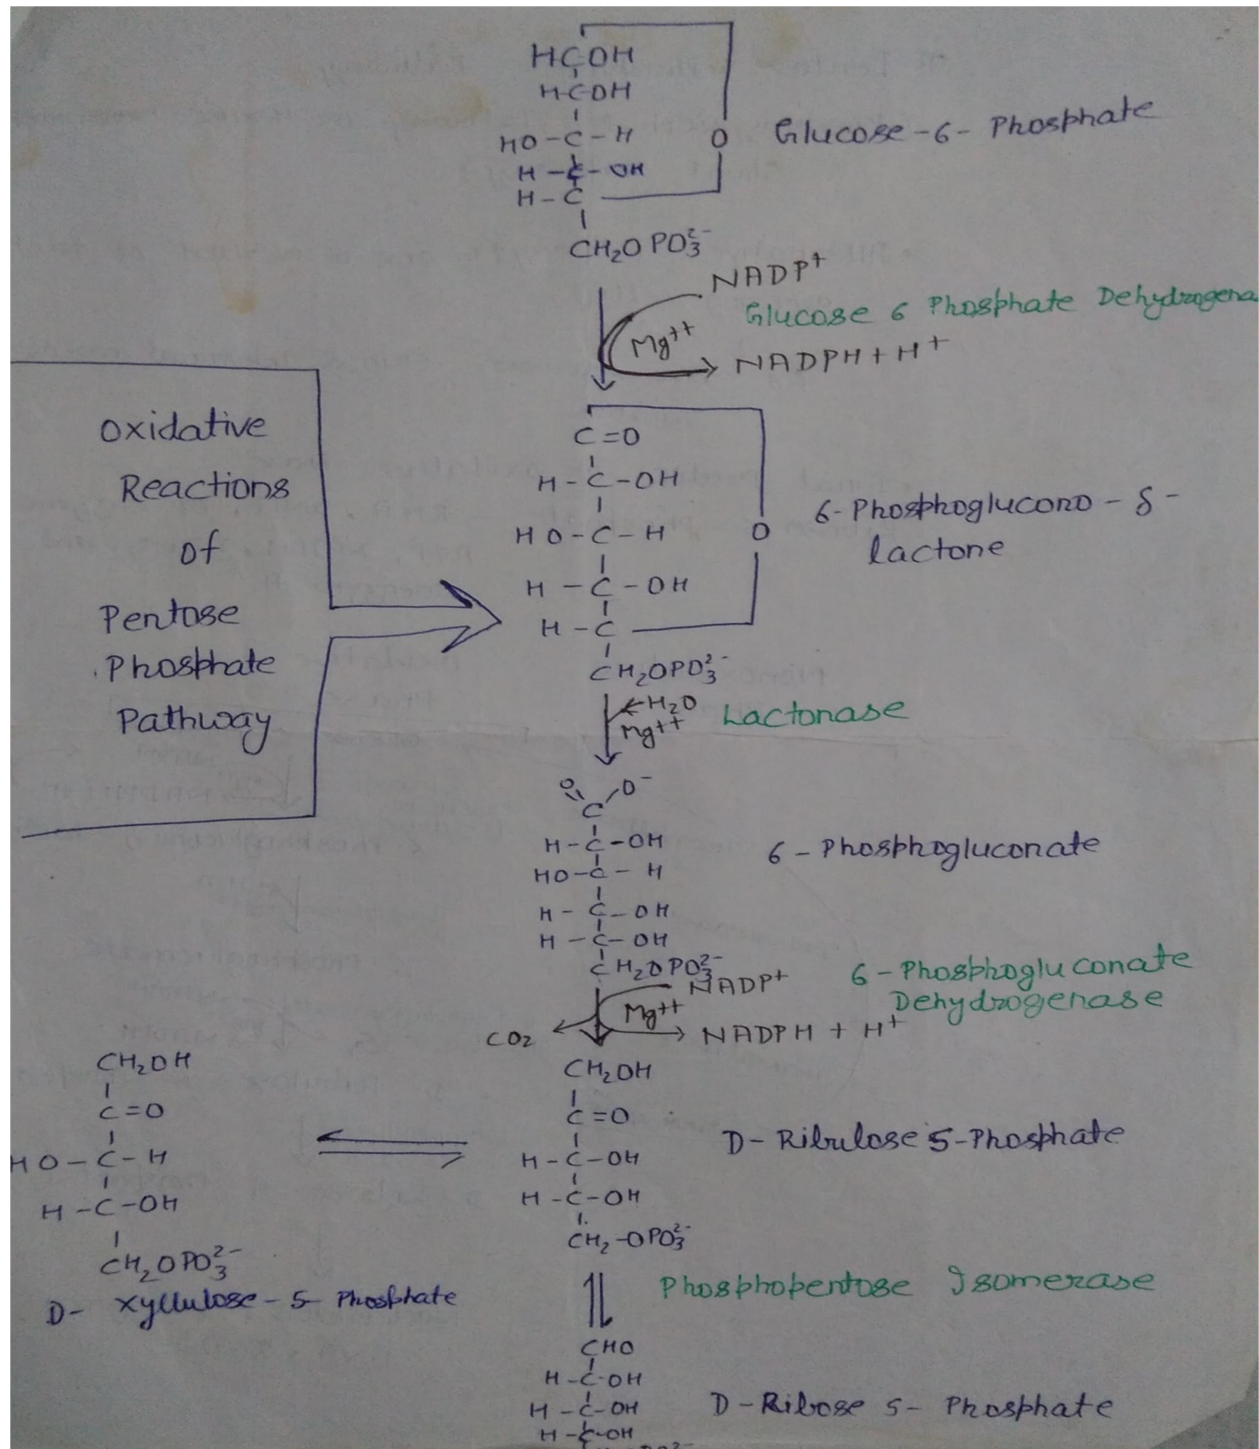 HCOH
H-COH
HO-C-H
H-C-OH
H-C
O
CH₂OPO₃²⁻
Glucose-6-Phosphate
NADP⁺
Glucose 6 Phosphate Dehydrogena
Mg⁺⁺
NADPH + H⁺
Oxidative
Reactions
of
Pentose
Phosphate
Pathway
C=O
H-C-OH
HO-C-H
O
H-C-OH
H-C
CH₂OPO₃²⁻
6-Phosphoglucono-δ-
lactone
H₂O
Mg⁺⁺
Lactonase
O O⁻
C
H-C-OH
HO-C-H
H-C-OH
H-C-OH
CH₂OPO₃²⁻
6-Phosphogluconate
NADP⁺
Mg⁺⁺
6-Phosphogluconate
Dehydrogenase
CO₂
NADPH + H⁺
CH₂OH
C=O
H-C-OH
H-C-OH
CH₂-OPO₃²⁻
D-Ribulose 5-Phosphate
CH₂OH
C=O
HO-C-H
H-C-OH
CH₂OPO₃²⁻
D-xyllulose-5-Phosphate
Phosphopentose Isomerase
CHO
H-C-OH
H-C-OH
H-C-OH
D-Ribose 5-Phosphate